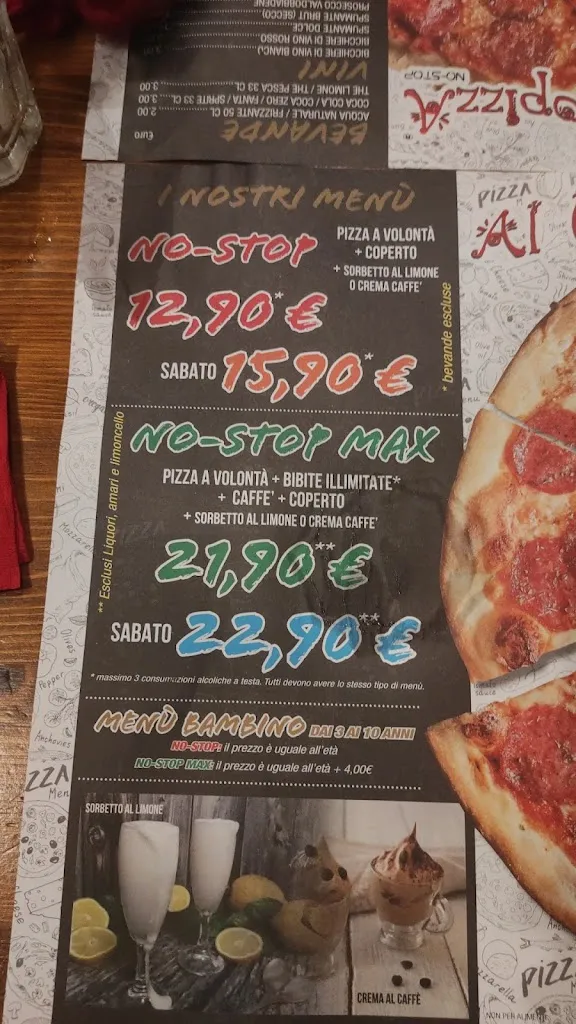 Euro
BEVANDE
ACQUA NATURALE / FRIZZANTE 50 CL 2.00
COCA COLA / COCA ZERO / FANTA / SPRITE 33 CL 3.00
THE LIMONE / THE PESCA 33 CL 3.00
VINI
BICCHIERE DI VINO BIANCO
BICCHIERE DI VINO ROSSO
SPUMANTE DOLCE
SPUMANTE BRUT (SECCO)
PROSECCO VALDOBBIADENE
NO-STOP
I NOSTRI MENÙ
NO-STOP
PIZZA A VOLONTÀ
+ COPERTO
+ SORBETTO AL LIMONE
O CREMA CAFFE'
12,90* €
SABATO 15,90* €
* bevande escluse
NO-STOP MAX
PIZZA A VOLONTÀ + BIBITE ILLIMITATE*
+ CAFFE' + COPERTO
+ SORBETTO AL LIMONE O CREMA CAFFE'
21,90** €
SABATO 22,90** €
** Esclusi Liquori, amari e limoncello
* massimo 3 consumazioni alcoliche a testa. Tutti devono avere lo stesso tipo di menù.
MENÙ BAMBINO DAI 3 AI 10 ANNI
NO-STOP: il prezzo è uguale all'età
NO-STOP MAX: il prezzo è uguale all'età + 4,00€
SORBETTO AL LIMONE
CREMA AL CAFFÈ
PIZZA
AI
Mozzarella
Olives
Pepper
Anchovies
ZZA
Menu
PIZZ
NON PER ALIMENTI